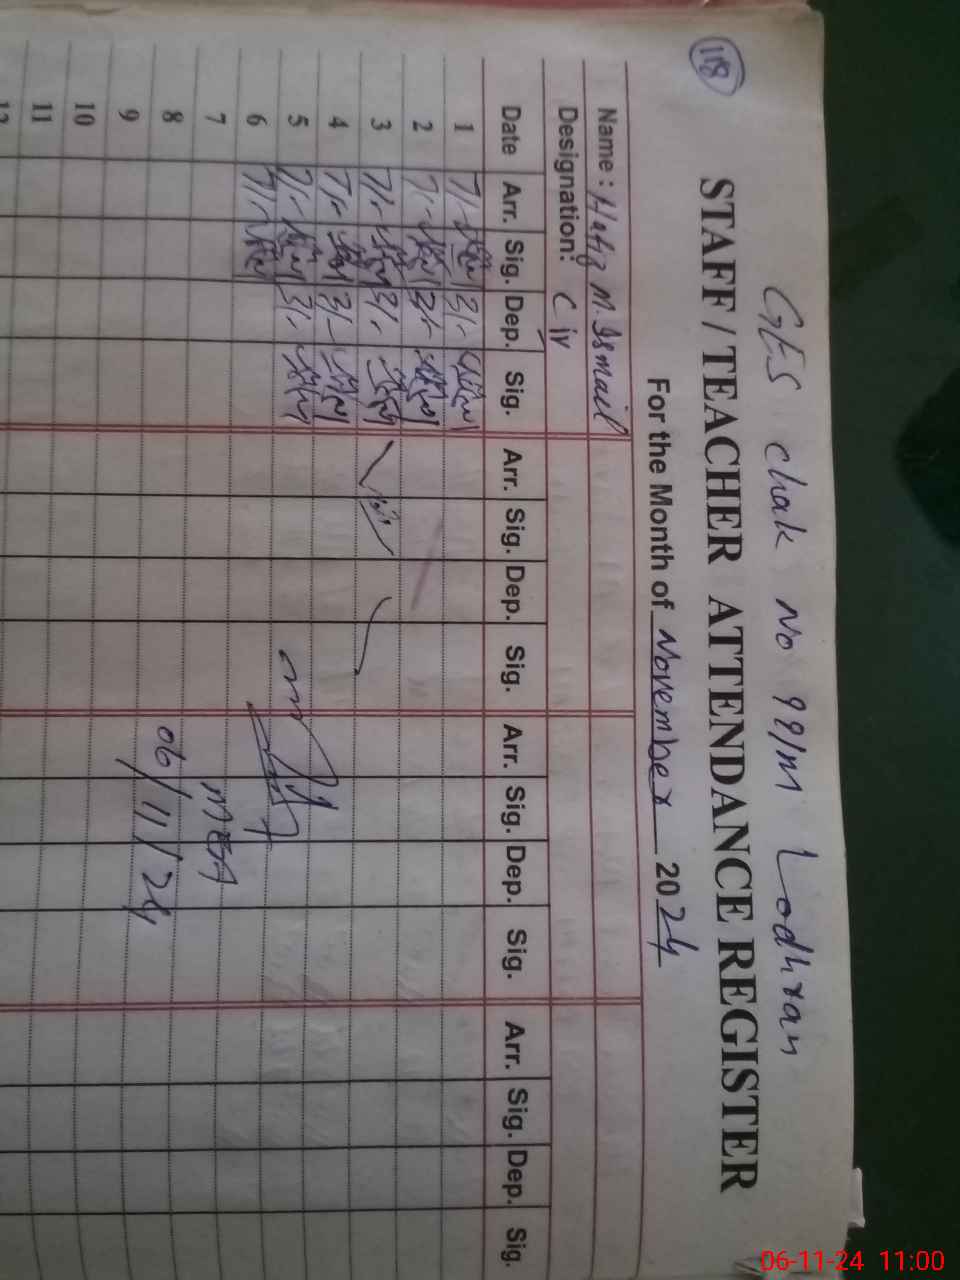 118
GES chak No 99/M Lodhran
STAFF / TEACHER ATTENDANCE REGISTER
For the Month of November 2024
Name : Hafiz M. Ismail
Designation: C iv
Date Arr. Sig. Dep. Sig. Arr. Sig. Dep. Sig. Arr. Sig. Dep. Sig. Arr. Sig. Dep. Sig.
1 7/- 3/-
2 7/- 3/-
3 7/- 3/-
4 7/- 3/-
5 7/- 3/-
6 7/-
7 MEA
8 06/11/24
9
10
11
12
06-11-24 11:00